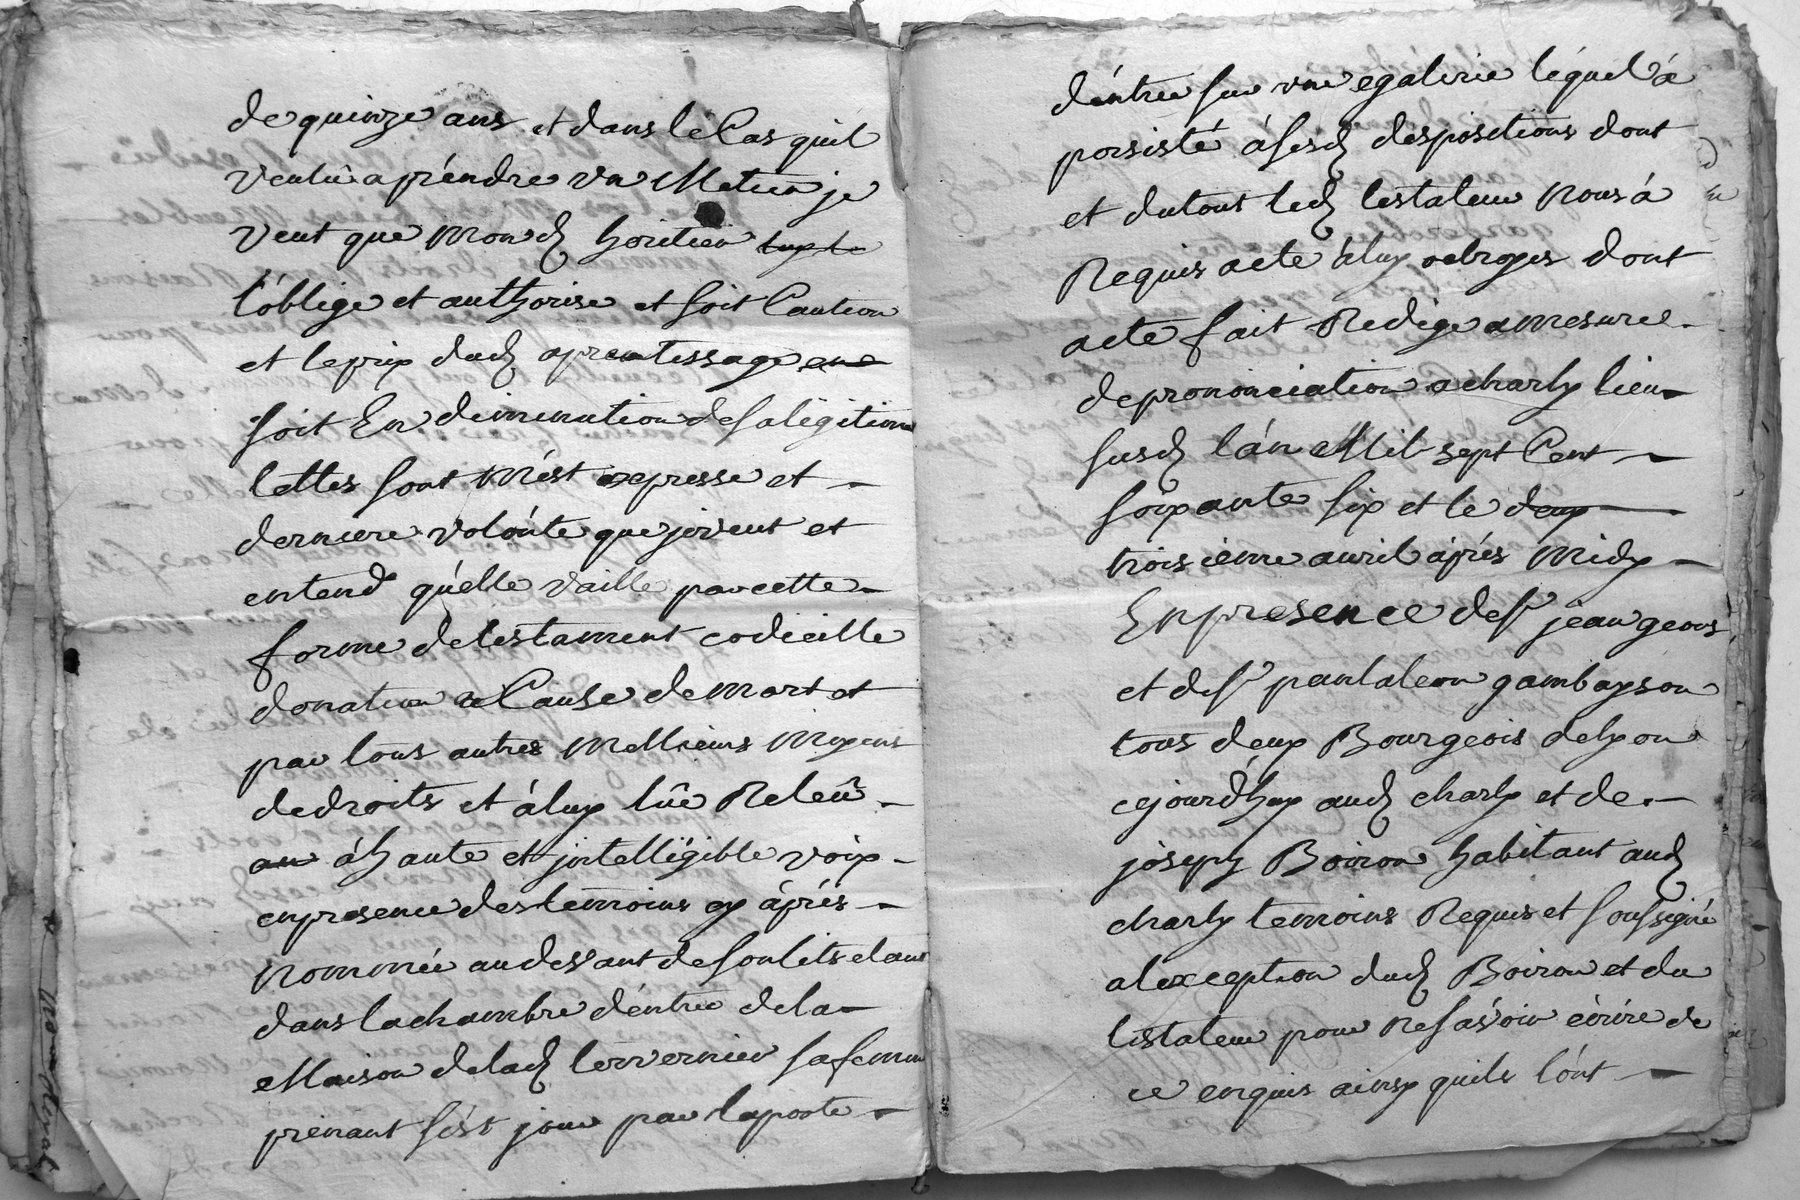 de quinze ans et dans lé Cas quil
veulû apréndre vn Metier je
veut que mond heritier
l'oblige et authorise et soit Caution
et le prix dud aprentissage
soit En dimenution de sa légitime
telles sont Mést expresse et
derniere volónte que je veut et
entend quélle vaille par cette
forme de testament codicille
donation a Cause de mort et
par tous autres Mellieurs Moyens
de droits et áluy lûe Releûe
á haute et jntelligible voix
en presence des temoins cy áprés
Nommée au devant de son lits
dans la chambre d'éntrée de la
Maison de lad sa femme
prenant sés jour par la porte
d'éntrée sur vne egalerie léquel á
persisté á sesd despositions dont
et du tout led testateur Nous á
Requis acte á luy octroyer dont
acte fait Redigé a mesure
de prononciation a charly lieu
susd l'an Mil sept Cent
soixante six et lé deux
troisieme auril áprés Midy
En presence de sr jean geons
et de sr pantaleon gambayson
tous deux Bourgeois de lyon
cejourd'huy aud charly et de
joseph Boiron habitant aud
charly temoins Requis et soussigné
alexception dud Boiron et du
testateur pour Ne sávoir écrire de
ce enquis ainsy quils lónt